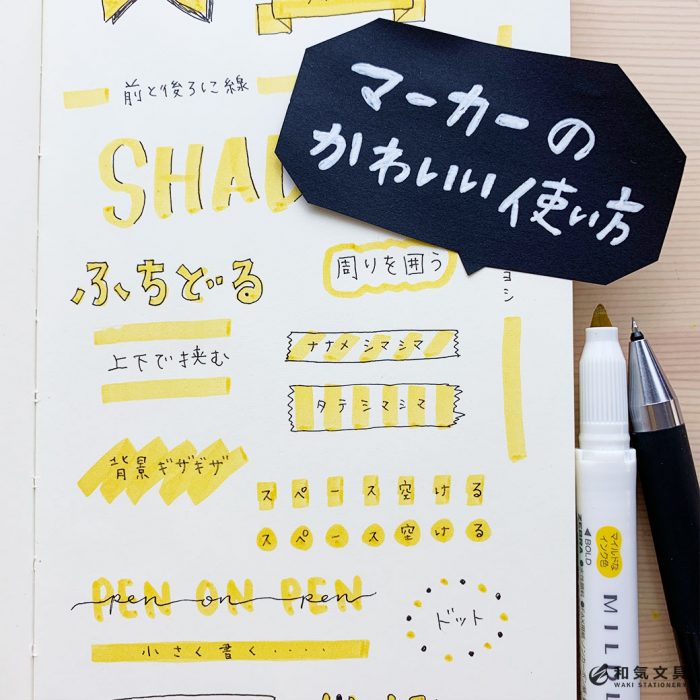 前と後ろに線
マーカーの
かわいい使い方
SHAD
ふちどる
周りを囲う
ヨシ
上下で挟む
ナナメシマシマ
タテシマシマ
背景ギザギザ
スペース空ける
スペース空ける
PEN ON PEN
pen on pen
ドット
小さく書く・・・・
マイルドな
インク色
◀BOLD
ZEBRA
MIL
和気文具
WAKI STATIONERY